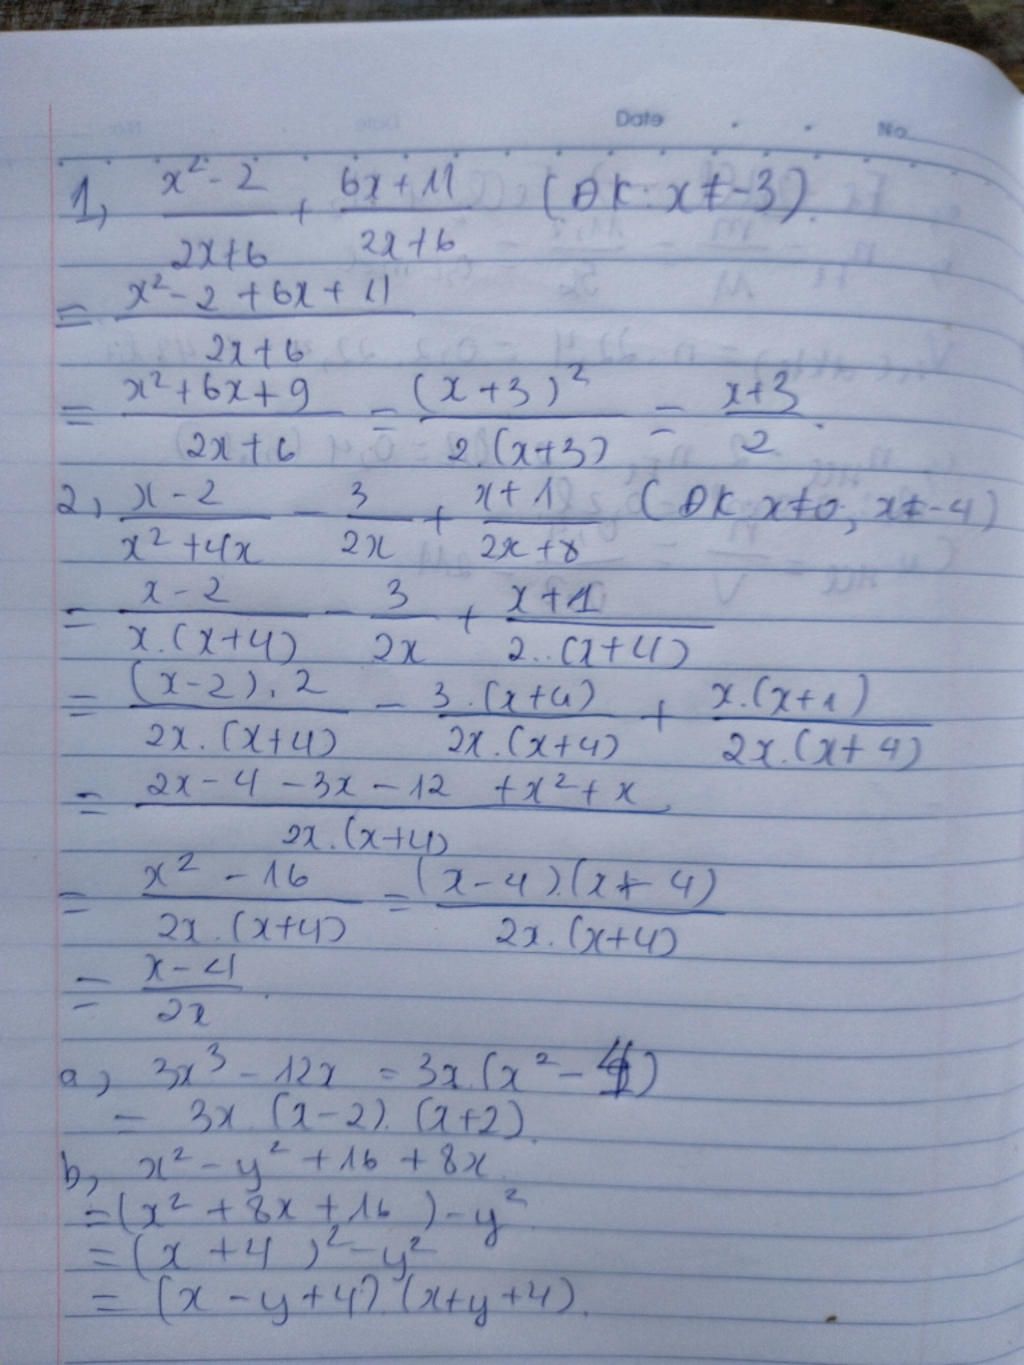 Date No
1, (x² - 2)/(2x+6) + (6x+11)/(2x+6) (ĐK: x ≠ -3).
= (x² - 2 + 6x + 11)/(2x+6)
= (x² + 6x + 9)/(2x+6) = (x+3)²/(2.(x+3)) = (x+3)/2.
2, (x-2)/(x²+4x) - 3/(2x) + (x+1)/(2x+8) (ĐK x≠0; x≠-4)
= (x-2)/(x.(x+4)) - 3/(2x) + (x+1)/(2..(x+4))
= ((x-2).2)/(2x.(x+4)) - (3.(x+4))/(2x.(x+4)) + (x.(x+1))/(2x.(x+4))
= (2x - 4 - 3x - 12 + x² + x)/(2x.(x+4))
= (x² - 16)/(2x.(x+4)) = ((x-4).(x+4))/(2x.(x+4))
= (x-4)/(2x).
a, 3x³ - 12x = 3x.(x² - 4)
= 3x.(x-2).(x+2).
b, x² - y² + 16 + 8x.
= (x² + 8x + 16) - y²
= (x + 4)² - y²
= (x - y + 4).(x + y + 4).